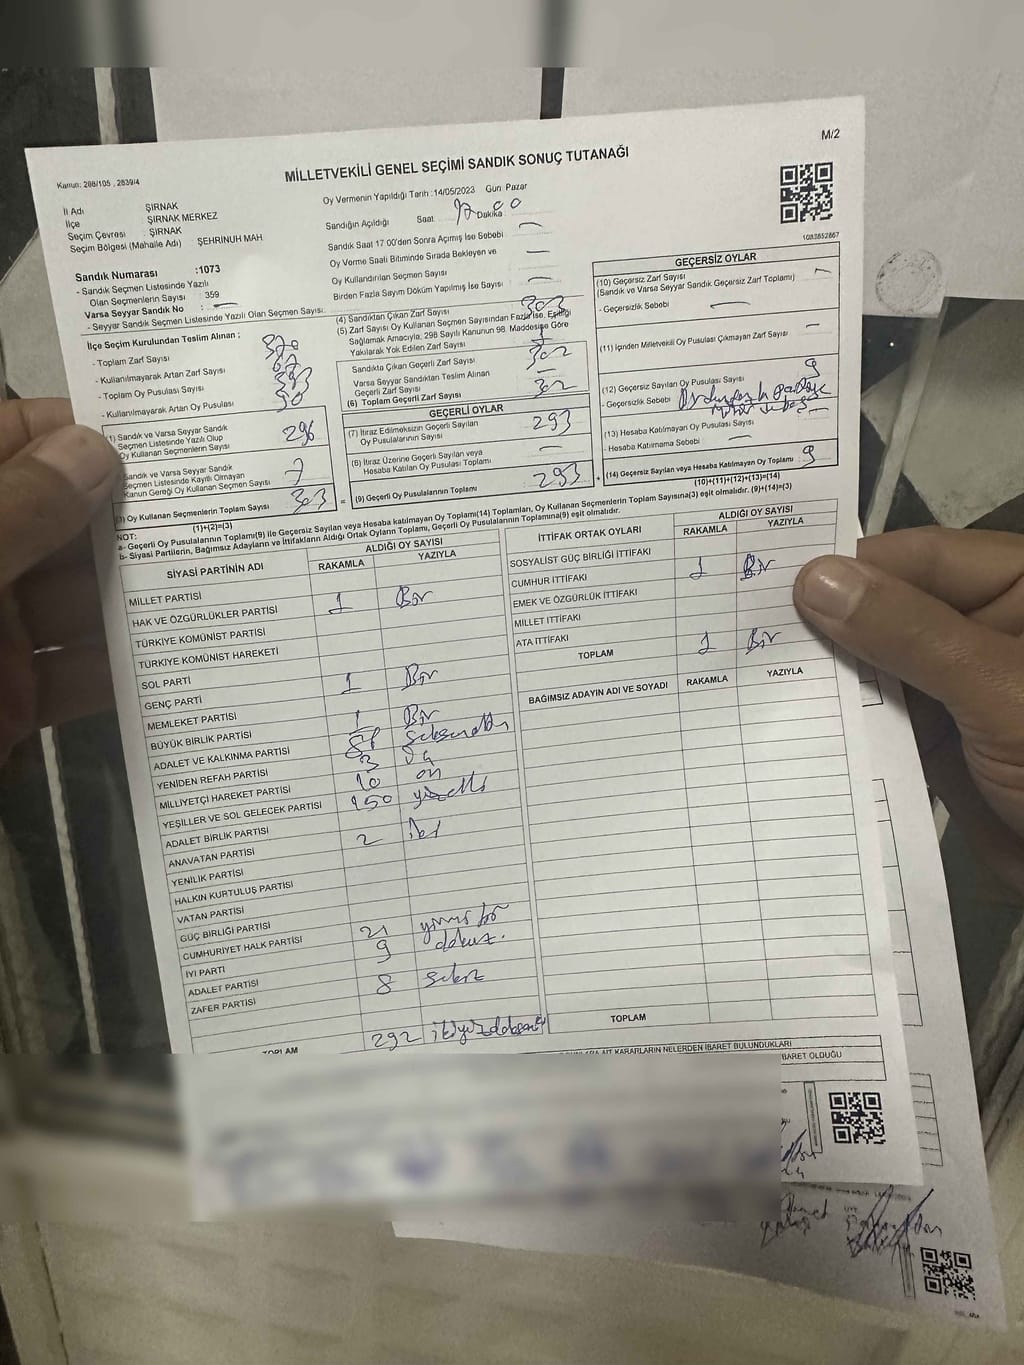 M/2
Kanun: 298/105 , 2839/4
MİLLETVEKİLİ GENEL SEÇİMİ SANDIK SONUÇ TUTANAĞI
İl Adı ŞIRNAK
İlçe ŞIRNAK MERKEZ
Seçim Çevresi : ŞIRNAK
Seçim Bölgesi (Mahalle Adı) ŞEHRİNUH MAH
Sandık Numarası :1073
- Sandık Seçmen Listesinde Yazılı
Olan Seçmenlerin Sayısı : 359
Varsa Seyyar Sandık No :
- Seyyar Sandık Seçmen Listesinde Yazılı Olan Seçmen Sayısı:
Oy Vermenin Yapıldığı Tarih :14/05/2023 Gün: Pazar
Sandığın Açıldığı Saat 17 Dakika 00
Sandık Saat 17:00'den Sonra Açımış İse Sebebi
Oy Verme Saati Bitiminde Sırada Bekleyen ve
Oy Kullandırılan Seçmen Sayısı
Birden Fazla Sayım Döküm Yapılmış İse Sayısı
1083852867
İlçe Seçim Kurulundan Teslim Alınan :
- Toplam Zarf Sayısı 370
- Kullanılmayarak Artan Zarf Sayısı 67
- Toplam Oy Pusulası Sayısı
- Kullanılmayarak Artan Oy Pusulası
(1) Sandık ve Varsa Seyyar Sandık
Seçmen Listesinde Yazılı Olup
Oy Kullanan Seçmenlerin Sayısı 296
Sandık ve Varsa Seyyar Sandık
Seçmen Listesinde Kayıtlı Olmayan
Kanun Gereği Oy Kullanan Seçmen Sayısı 7
(3) Oy Kullanan Seçmenlerin Toplam Sayısı 303
(1)+(2)=(3)
(4) Sandıktan Çıkan Zarf Sayısı 303
(5) Zarf Sayısı Oy Kullanan Seçmen Sayısından Fazla İse, Eşitliği
Sağlamak Amacıyla, 298 Sayılı Kanunun 98. Maddesine Göre
Yakılarak Yok Edilen Zarf Sayısı
Sandıkta Çıkan Geçerli Zarf Sayısı 302
Varsa Seyyar Sandıktan Teslim Alınan
Geçerli Zarf Sayısı
(6) Toplam Geçerli Zarf Sayısı 302
GEÇERLİ OYLAR
(7) İtiraz Edilmeksizin Geçerli Sayılan
Oy Pusulalarının Sayısı 293
(8) İtiraz Üzerine Geçerli Sayılan veya
Hesaba Katılan Oy Pusulası Toplamı
= (9) Geçerli Oy Pusulalarının Toplamı 293 +
GEÇERSİZ OYLAR
(10) Geçersiz Zarf Sayısı
(Sandık ve Varsa Seyyar Sandık Geçersiz Zarf Toplamı)
- Geçersizlik Sebebi
(11) İçinden Milletvekili Oy Pusulası Çıkmayan Zarf Sayısı
(12) Geçersiz Sayılan Oy Pusulası Sayısı 9
- Geçersizlik Sebebi
(13) Hesaba Katılmayan Oy Pusulası Sayısı
- Hesaba Katılmama Sebebi
(14) Geçersiz Sayılan veya Hesaba Katılmayan Oy Toplamı 9
(10)+(11)+(12)+(13)=(14)
NOT:
a- Geçerli Oy Pusulalarının Toplamı(9) ile Geçersiz Sayılan veya Hesaba katılmayan Oy Toplamı(14) Toplamları, Oy Kullanan Seçmenlerin Toplam Sayısına(3) eşit olmalıdır. (9)+(14)=(3)
b- Siyasi Partilerin, Bağımsız Adayların ve İttifakların Aldığı Ortak Oyların Toplamı, Geçerli Oy Pusulalarının Toplamına(9) eşit olmalıdır.
SİYASİ PARTİNİN ADI ALDIĞI OY SAYISI
RAKAMLA YAZIYLA
MİLLET PARTİSİ
HAK VE ÖZGÜRLÜKLER PARTİSİ 1 Bir
TÜRKİYE KOMÜNİST PARTİSİ
TÜRKİYE KOMÜNİST HAREKETİ
SOL PARTİ
GENÇ PARTİ 1 Bir
MEMLEKET PARTİSİ
BÜYÜK BİRLİK PARTİSİ 1 Bir
ADALET VE KALKINMA PARTİSİ
YENİDEN REFAH PARTİSİ 3 üç
MİLLİYETÇİ HAREKET PARTİSİ 10 on
YEŞİLLER VE SOL GELECEK PARTİSİ 150 yüzelli
ADALET BİRLİK PARTİSİ
ANAVATAN PARTİSİ 2 iki
YENİLİK PARTİSİ
HALKIN KURTULUŞ PARTİSİ
VATAN PARTİSİ
GÜÇ BİRLİĞİ PARTİSİ
CUMHURİYET HALK PARTİSİ 21 yirmi bir
İYİ PARTİ 9 dokuz.
ADALET PARTİSİ
ZAFER PARTİSİ 8 sekiz
TOPLAM 292
İTTİFAK ORTAK OYLARI ALDIĞI OY SAYISI
RAKAMLA YAZIYLA
SOSYALİST GÜÇ BİRLİĞİ İTTİFAKI
CUMHUR İTTİFAKI 1 Bir
EMEK VE ÖZGÜRLÜK İTTİFAKI
MİLLET İTTİFAKI
ATA İTTİFAKI
TOPLAM 1 Bir
BAĞIMSIZ ADAYIN ADI VE SOYADI RAKAMLA YAZIYLA
TOPLAM
AİT KARARLARIN NELERDEN İBARET BULUNDUKLARI
İBARET OLDUĞU